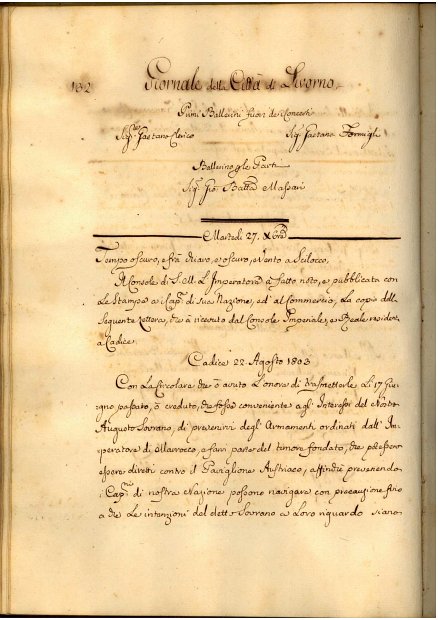 132 Giornale della Città di Livorno
Primi Ballerini fuori de Concerti
Sig.re Gaetano Clerico Sig. Gaetano Formigli
Ballerino p le Parti
Sig. Gio. Batta Massari
Martedì 27. Xbre
Tempo oscuro, e frà chiaro, e oscuro, e Vento a Scilocco.
Il Console di S. M. L'Imperatore à fatto noto, e pubblicata con
Le Stampe a i Capi di sua Nazione, ed al Commercio, La copia della
Seguente Lettera, che à ricevuto dal Console Imperiale, e Reale residente
a Cadice.
Cadice 22. Agosto 1803
Con La Circolare che ò avuto L'onore di Trasmetterle Li 17 Giu-
gno passato, ò creduto, che fosse conveniente agl'Interessi del Nostro
Augusto Sovrano, di prevenirvi degl'Armamenti ordinati dall'Im-
peratore di Marocco, e farvi parte del timore fondato, che potessero
essere diretti contro il Paviglione Austriaco, affinchè prevenendo
i Capi di nostra Nazione possono navigare con precauzione fino
a che Le intenzioni del detto Sovrano a Loro riguardo siano